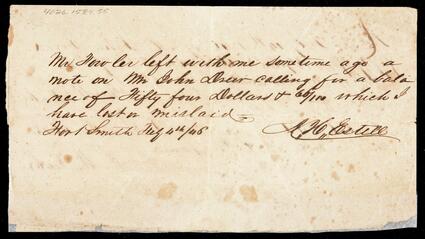 4026.1584.55
Mr Fowler left with me sometime ago a
note on Mr John Drew calling for a bala
nce of Fifty four Dollars & 60/100 which I
have lost or mislaid.
Fort Smith 4th/46
A. H. Estell